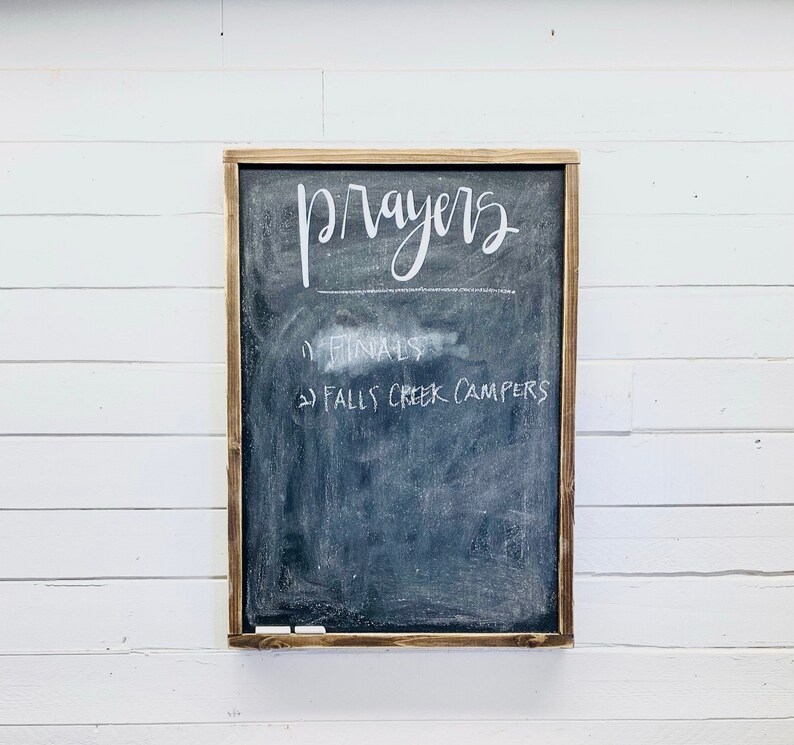 prayers
1) FINALS
2) FALLS CREEK CAMPERS